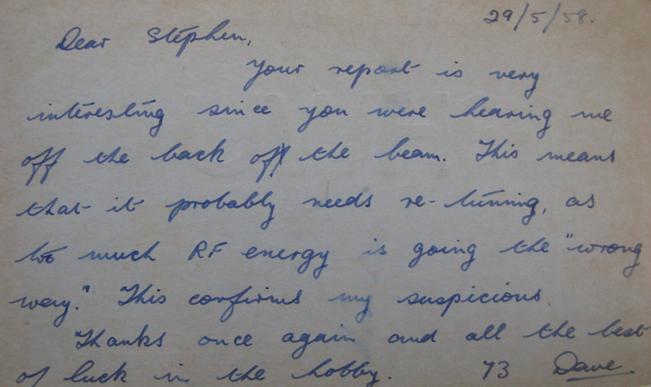 29/5/58.
Dear Stephen,
Your report is very
interesting since you were hearing me
off the back off the beam. This means
that it probably needs re-tunning, as
too much RF energy is going the "wrong
way." This confirms my suspicions.
Thanks once again and all the best
of luck in the hobby. 73 Dave.